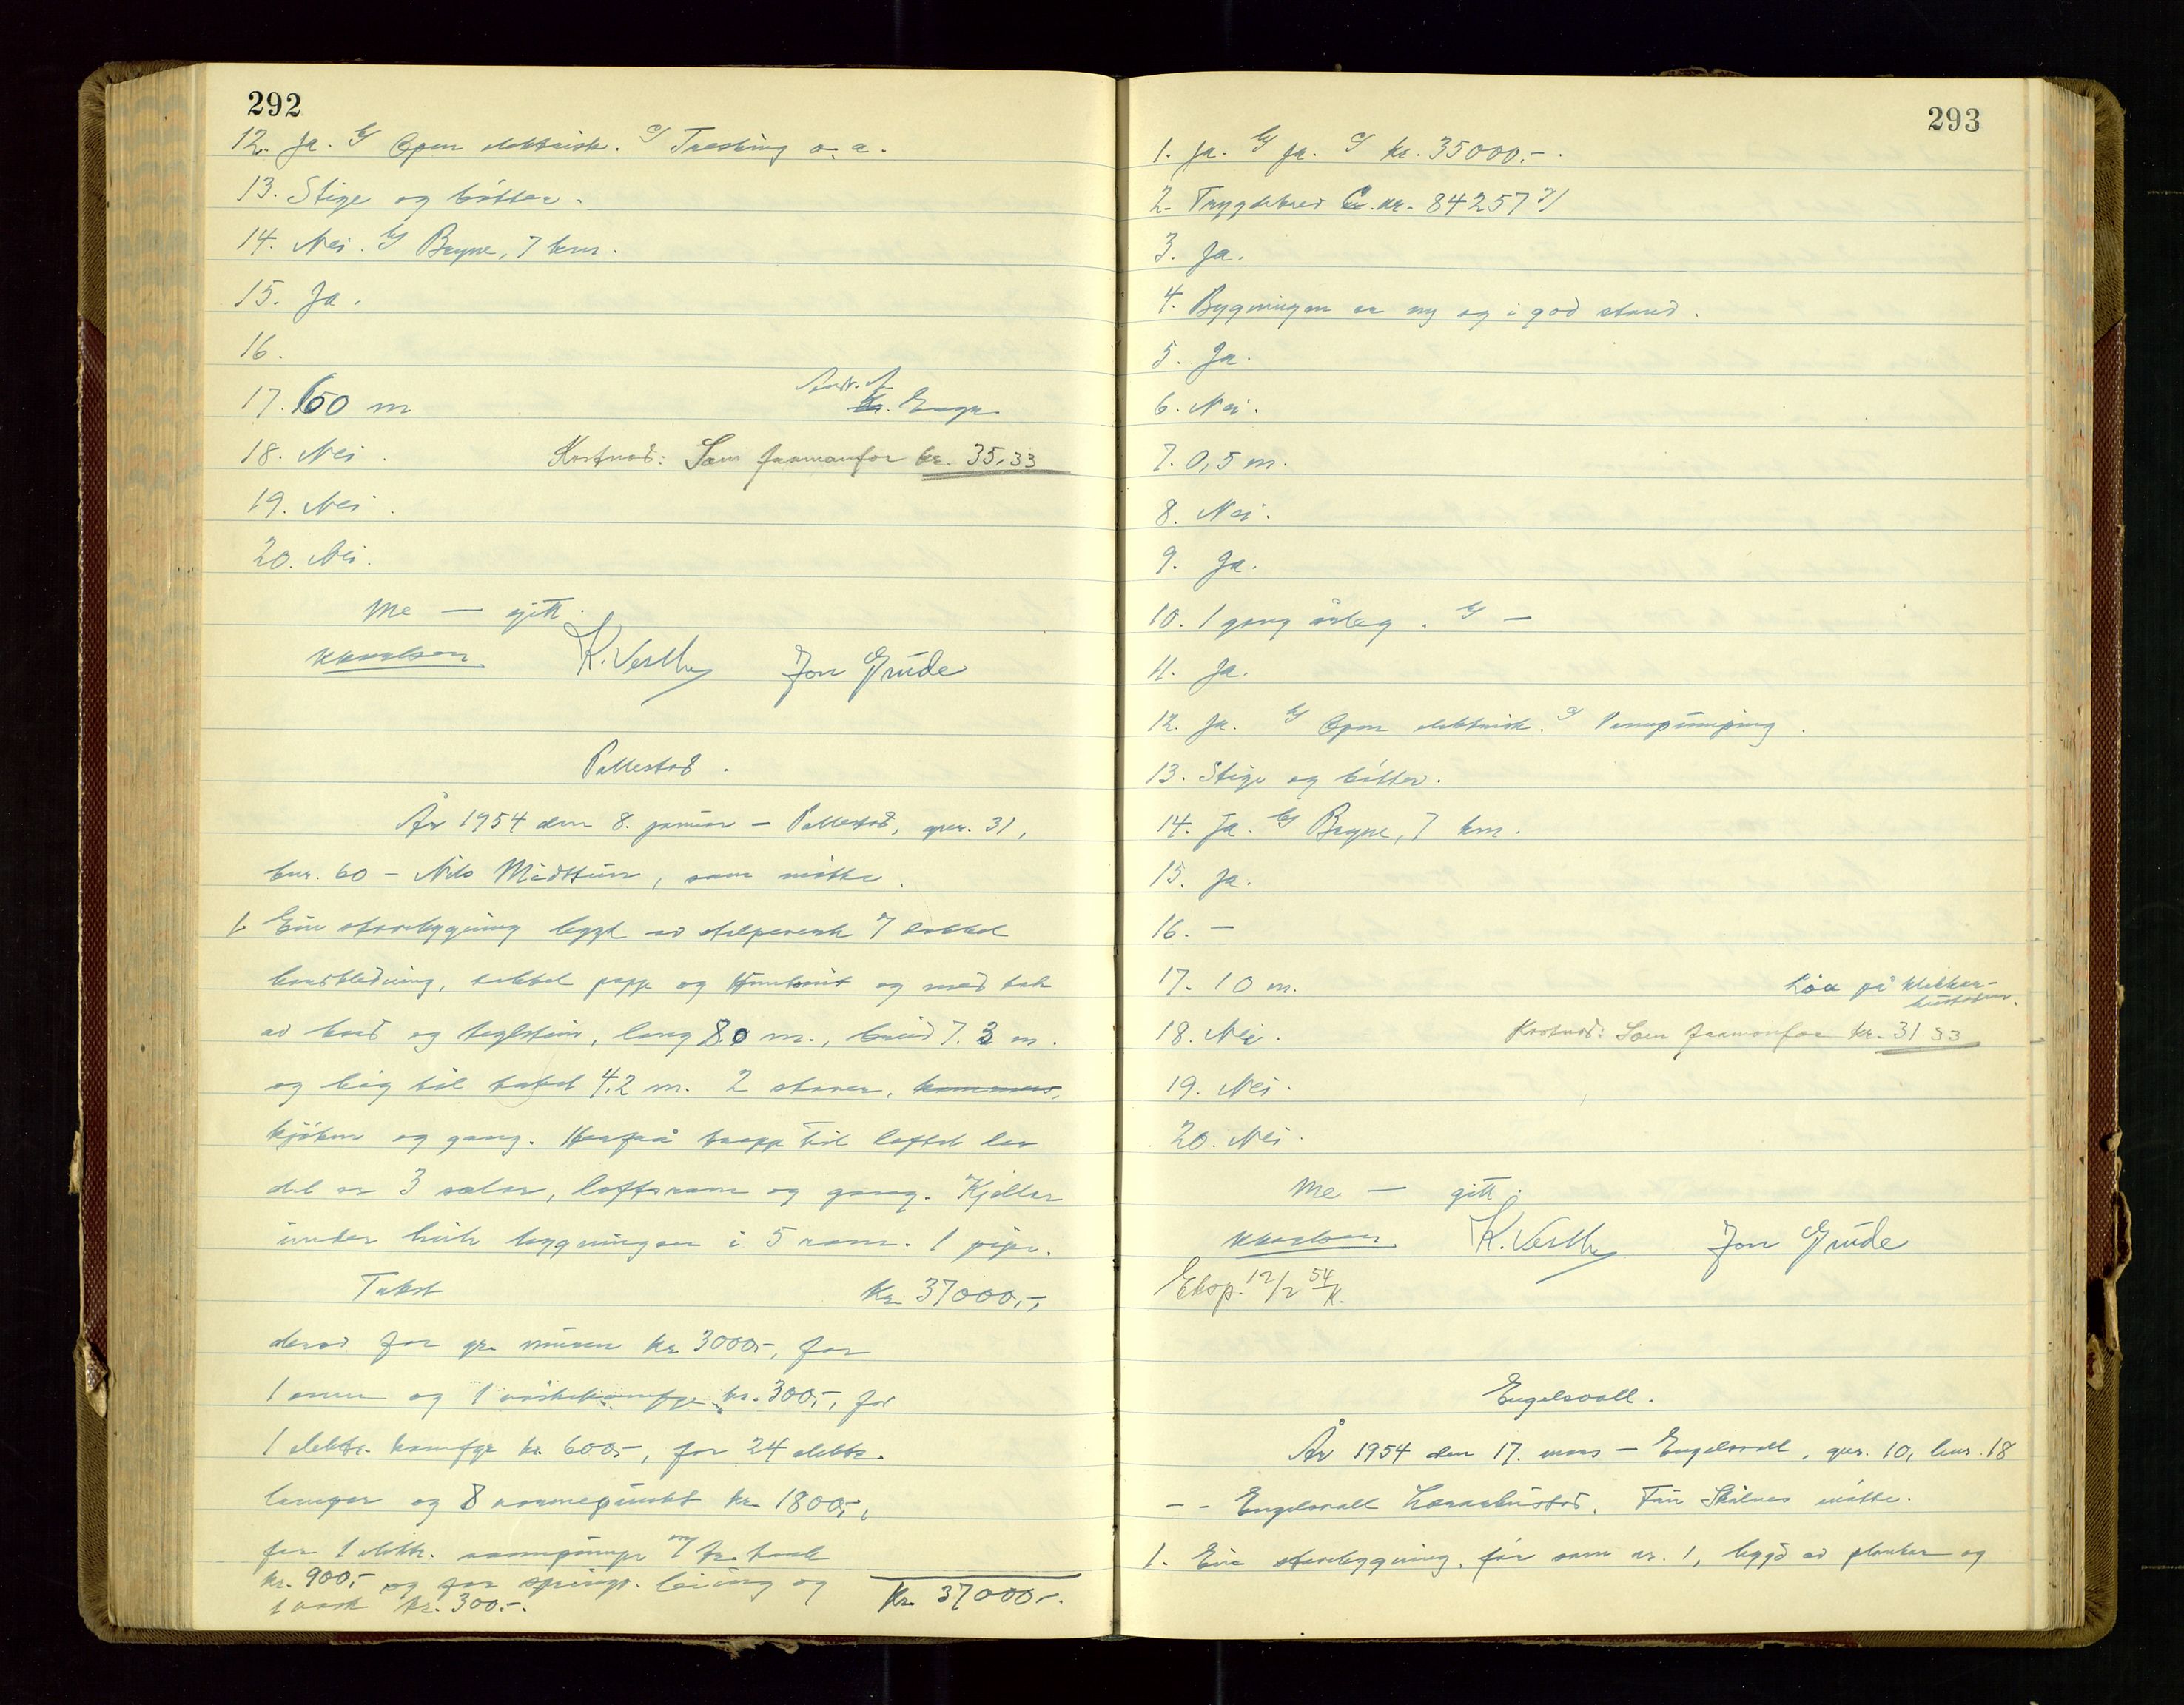 292
12. Ja. b/ Open elektrisk. c/ Tresking o. a.
13. Stige og bötter.
14. Nei. b/ Bryne, 7 km.
15. Ja.
16.
17. 60 m
18. Nei.
Kostnad: Som framanfor kr. 35,33
19. Nei.
20. Nei.
Me — gitt.
K. Vestly Jon Grude
Pollestad.
År 1954 den 8. januar – Pollestad, gnr. 31,
bnr. 60 – Nils Midttun, som møtte.
1. Ein stovebygning bygd av stolpeverk m/ dobbel
bordkledning, dobbel papp og og med tak
av bord og teglstein, lang 8.0 m., breid 7.3 m.
og høg til taket 4.2 m. 2 stover, kammers,
kjøken og gang. Herfrå trapp til loftet der
det er 3 salar, loftsrom og gang. Kjellar
under heile bygningen i 5 rom. 1 pipe.
Takst Kr. 37000,-,
derav for gr. muren kr. 3000,-, for
1 omn og 1 kr. 300,-, for
1 elektr. komfyr kr. 600,-, for 24 elektr.
lamper og 8 varmepunkt kr. 1800,-,
for 1 elektr. vannpumpe m/ tr. tank
kr. 900,- og for springv. leiing og
1 vask kr. 300.-.
Kr. 37000,-.
293
1. Ja. b/ Ja. c/ kr. 35000.-.
2. Trygdebrev nr. 84257
3. Ja.
4. Bygningen er ny og i god stand.
5. Ja.
6. Nei.
7. 0,5 m.
8. Nei.
9. Ja.
10. 1 gong årleg. b/ —
11. Ja.
12. Ja. b/ Open elektrisk. c/ Vannpumping.
13. Stige og bötter.
14. Ja. b/ Bryne, 7 km.
15. Ja.
16. –
17. 10 m.
Löa på
18. Nei.
Kostnad: Som framanfor kr. 31 33
19. Nei.
20. Nei.
Me — gitt.
K. Vestly Jon Grude
Eksp. 12/2 54 K.
Engelsvoll.
År 1954 den 17. mars – Engelsvoll, gnr. 10, bnr. 18
– – Engelsvoll Lærarbustad. møtte.
1. Ein stovebygning, før som nr. 1, bygd av planker og